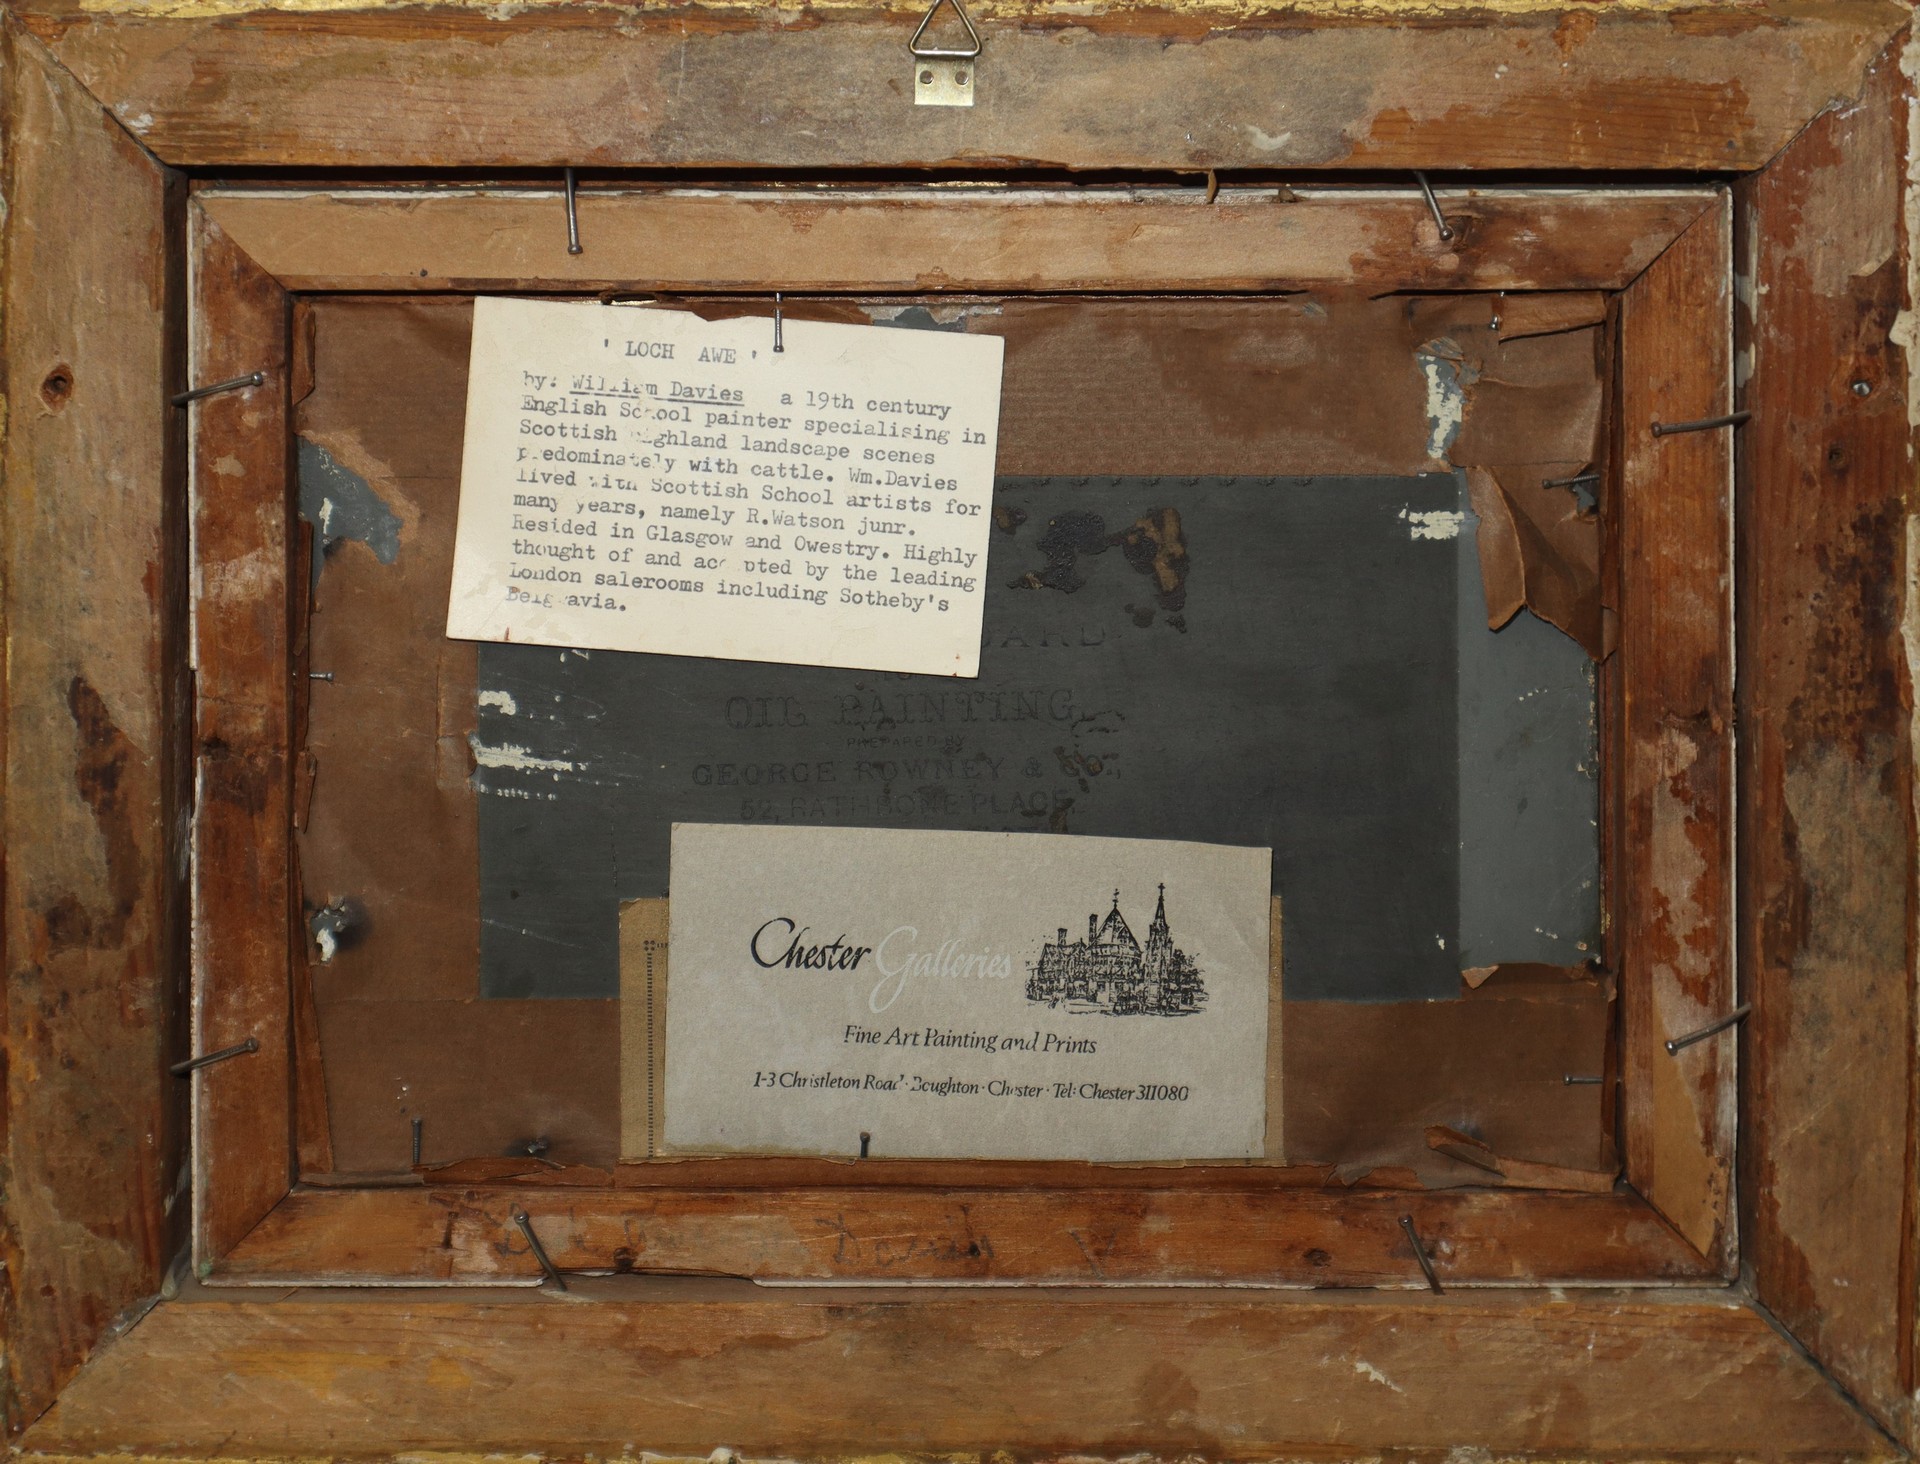 ' LOCH AWE '
by: William Davies a 19th century
English School painter specialising in
Scottish Highland landscape scenes
predominately with cattle. Wm.Davies
lived with Scottish School artists for
many years, namely R.Watson junr.
Resided in Glasgow and Owestry. Highly
thought of and accepted by the leading
London salerooms including Sotheby's
Belgravia.
OIL PAINTING,
PREPARED BY
GEORGE ROWNEY & CO.,
52, RATHBONE PLACE,
Chester Galleries
Fine Art Painting and Prints
1-3 Christleton Road · Boughton · Chester · Tel: Chester 311080